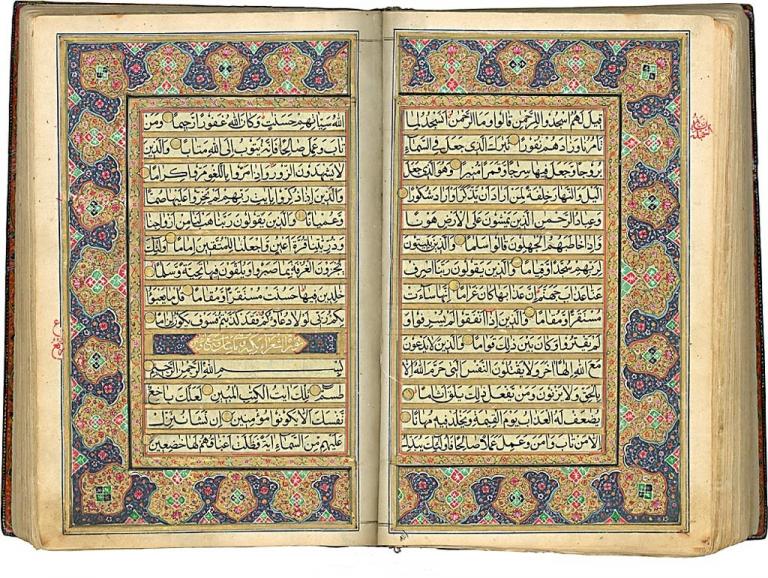 قِيلَ لَهُمُ اسْجُدُوا لِلرَّحْمٰنِ قَالُوا وَمَا الرَّحْمٰنُ اَنَسْجُدُ لِمَا
تَأْمُرُنَا وَزَادَهُمْ نُفُورًا تَبَارَكَ الَّذِي جَعَلَ فِي السَّمَاءِ
بُرُوجًا وَجَعَلَ فِيهَا سِرَاجًا وَقَمَرًا مُنِيرًا وَهُوَ الَّذِي جَعَلَ
اللَّيْلَ وَالنَّهَارَ خِلْفَةً لِمَنْ اَرَادَ اَنْ يَذَّكَّرَ اَوْ اَرَادَ شُكُورًا
وَعِبَادُ الرَّحْمٰنِ الَّذِينَ يَمْشُونَ عَلَى الْاَرْضِ هَوْنًا
وَاِذَا خَاطَبَهُمُ الْجٰهِلُونَ قَالُوا سَلَامًا وَالَّذِينَ يَبِيتُونَ
لِرَبِّهِمْ سُجَّدًا وَقِيَامًا وَالَّذِينَ يَقُولُونَ رَبَّنَا اصْرِفْ
عَنَّا عَذَابَ جَهَنَّمَ اِنَّ عَذَابَهَا كَانَ غَرَامًا اِنَّهَا سَاءَتْ
مُسْتَقَرًّا وَمُقَامًا وَالَّذِينَ اِذَا اَنْفَقُوا لَمْ يُسْرِفُوا وَ
لَمْ يَقْتُرُوا وَكَانَ بَيْنَ ذٰلِكَ قَوَامًا وَالَّذِينَ لَا يَدْعُونَ
مَعَ اللهِ اِلٰهًا اٰخَرَ وَلَا يَقْتُلُونَ النَّفْسَ الَّتِي حَرَّمَ اللهُ اِلَّا
بِالْحَقِّ وَلَا يَزْنُونَ وَمَنْ يَفْعَلْ ذٰلِكَ يَلْقَ اَثَامًا
يُضَاعَفْ لَهُ الْعَذَابُ يَوْمَ الْقِيٰمَةِ وَيَخْلُدْ فِيهِ مُهَانًا
اِلَّا مَنْ تَابَ وَاٰمَنَ وَعَمِلَ عَمَلًا صَالِحًا فَاُولٰئِكَ يُبَدِّلُ
اللهُ سَيِّاٰتِهِمْ حَسَنٰتٍ وَكَانَ اللهُ غَفُورًا رَحِيمًا وَمَنْ
تَابَ وَعَمِلَ صَالِحًا فَاِنَّهُ يَتُوبُ اِلَى اللهِ مَتَابًا وَالَّذِينَ
لَا يَشْهَدُونَ الزُّورَ وَاِذَا مَرُّوا بِاللَّغْوِ مَرُّوا كِرَامًا
وَالَّذِينَ اِذَا ذُكِّرُوا بِاٰيٰتِ رَبِّهِمْ لَمْ يَخِرُّوا عَلَيْهَا صُمًّا
وَعُمْيَانًا وَالَّذِينَ يَقُولُونَ رَبَّنَا هَبْ لَنَا مِنْ اَزْوَاجِنَا
وَذُرِّيّٰتِنَا قُرَّةَ اَعْيُنٍ وَاجْعَلْنَا لِلْمُتَّقِينَ اِمَامًا اُولٰئِكَ
يُجْزَوْنَ الْغُرْفَةَ بِمَا صَبَرُوا وَيُلَقَّوْنَ فِيهَا تَحِيَّةً وَسَلَامًا
خٰلِدِينَ فِيهَا حَسُنَتْ مُسْتَقَرًّا وَمُقَامًا قُلْ مَا يَعْبَؤُا
بِكُمْ رَبِّي لَوْلَا دُعَاؤُكُمْ فَقَدْ كَذَّبْتُمْ فَسَوْفَ يَكُونُ لِزَامًا
بِسْمِ اللهِ الرَّحْمٰنِ الرَّحِيمِ
طٰسٓمٓ تِلْكَ اٰيٰتُ الْكِتٰبِ الْمُبِينِ لَعَلَّكَ بَاخِعٌ
نَفْسَكَ اَلَّا يَكُونُوا مُؤْمِنِينَ اِنْ نَشَأْ نُنَزِّلْ
عَلَيْهِمْ مِنَ السَّمَاءِ اٰيَةً فَظَلَّتْ اَعْنَاقُهُمْ لَهَا خٰضِعِينَ